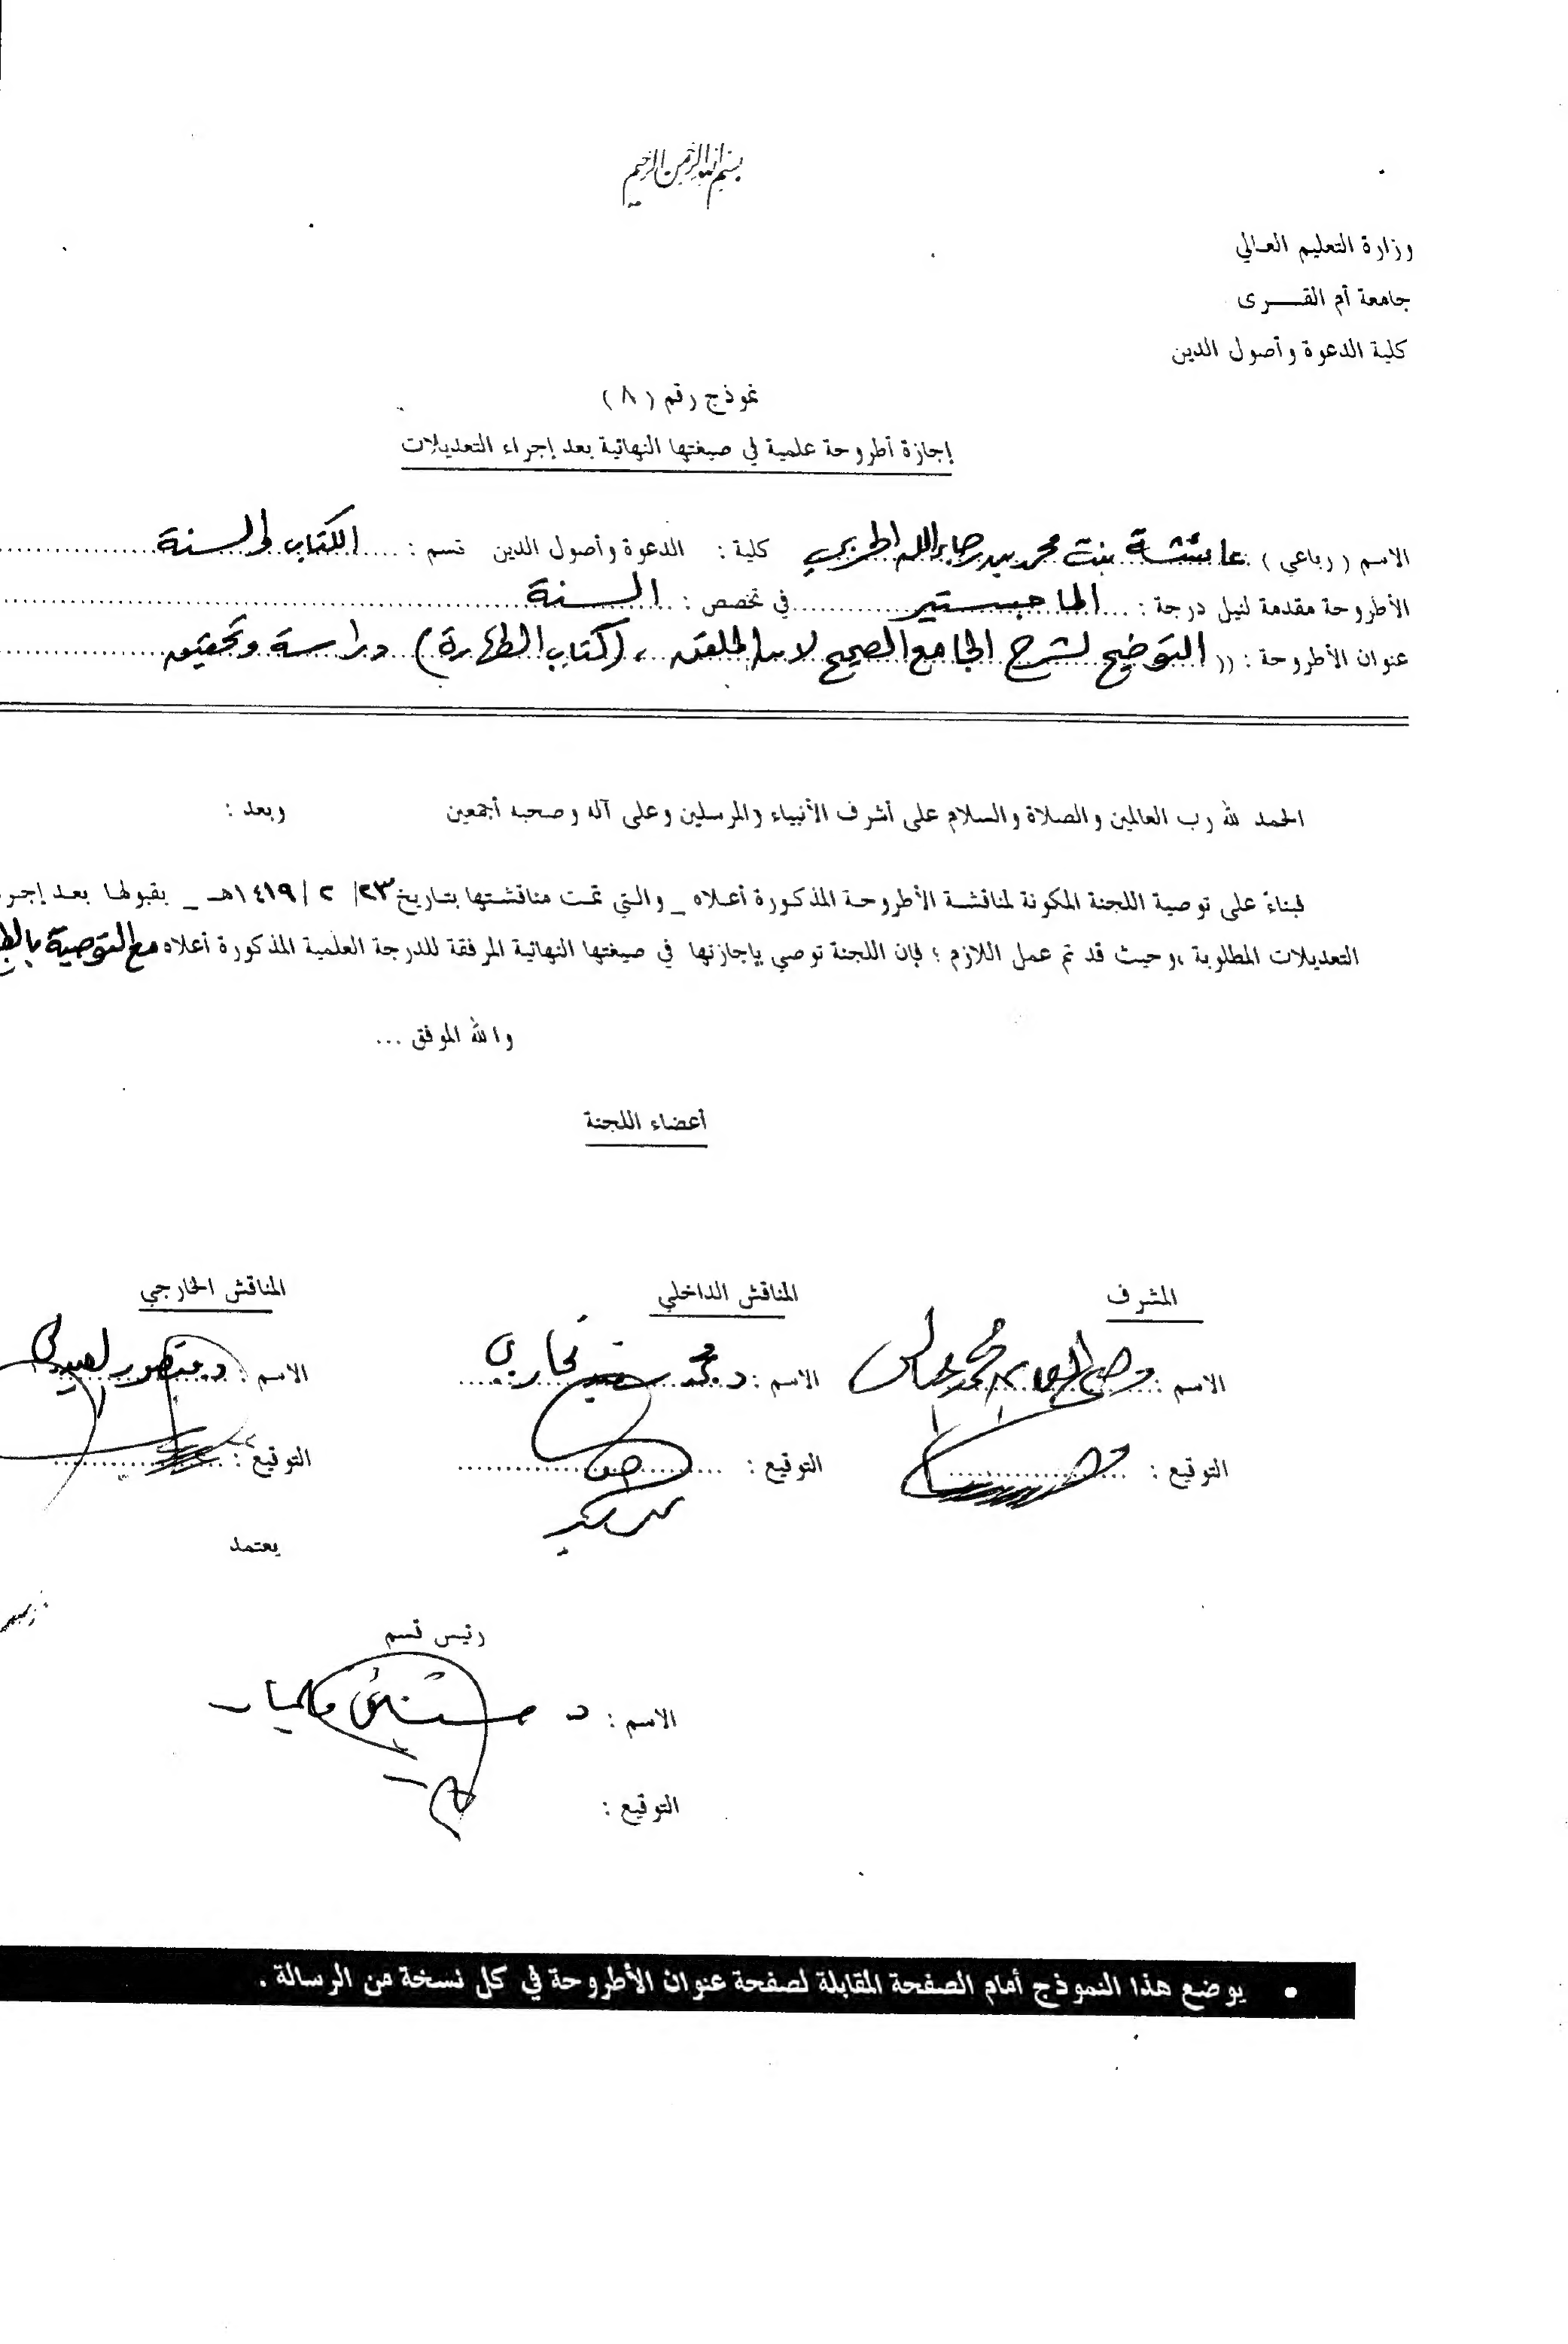 بسم الله الرحمن الرحيم
وزارة التعليم العالي
جامعة أم القـــرى
كلية الدعوة وأصول الدين
نموذج رقم ( ٨ )
إجازة أطروحة علمية في صيغتها النهائية بعد إجراء التعديلات
الاسم ( رباعي ) : عائشة بنت محمد بن جابر الله الحربي كلية : الدعوة وأصول الدين قسم : الكتاب والسنة
الأطروحة مقدمة لنيل درجة : الماجستير في تخصص : السنة
عنوان الأطروحة : (( التوضيح لشرح الجامع الصحيح لابن الملقن ، (كتاب الطهارة) دراسة وتحقيق
الحمد لله رب العالمين والصلاة والسلام على أشرف الأنبياء والمرسلين وعلى آله وصحبه أجمعين وبعد :
فبناءً على توصية اللجنة المكونة لمناقشة الأطروحة المذكورة أعلاه _ والتي تمت مناقشتها بتاريخ ٢٣/ ٢ / ١٤١٩هـ _ بقبولها بعد
التعديلات المطلوبة ،وحيث قد تم عمل اللازم ؛ فإن اللجنة توصي بإجازتها في صيغتها النهائية المرفقة للدرجة العلمية المذكورة أعلاه مع التوصية
والله الموفق ...
أعضاء اللجنة
المشرف المناقش الداخلي المناقش الخارجي
الاسم : وصي الله بن محمد عباس الاسم : د. محمد سعيد بخاري الاسم : د. منصور العبدلي
التوقيع : التوقيع : التوقيع :
يعتمد
رئيس قسم
الاسم : د
التوقيع :
• يوضع هذا النموذج أمام الصفحة المقابلة لصفحة عنوان الأطروحة في كل نسخة من الرسالة .